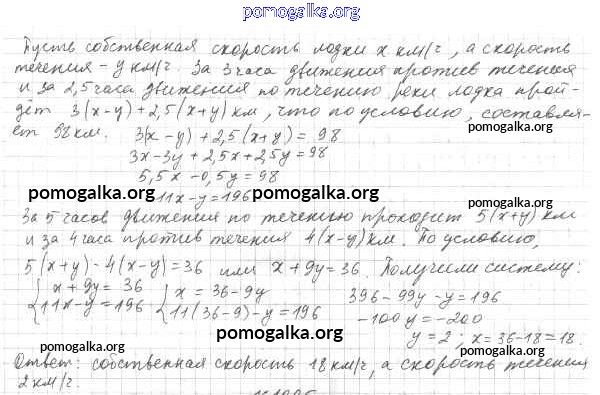 pomogalka.org
Пусть собственная скорость лодки x км/ч, а скорость
течения – y км/ч. За 3 часа движения против течения
и за 2,5 часа движения по течению реки лодка прой-
дёт 3(x-y)+2,5(x+y) км, что по условию, составля-
ет 98 км. 3(x-y)+2,5(x+y)=98
pomogalka.org
3x-3y+2,5x+2,5y=98
5,5x-0,5y=98
pomogalka.org 11x-y=196 pomogalka.org
За 5 часов движения по течению проходит 5(x+y) км
и за 4 часа против течения 4(x-y) км. По условию,
5(x+y)-4(x-y)=36 или x+9y=36. Получили систему:
{x+9y=36 {x=36-9y 396-99y-y=196
{11x-y=196 {11(36-9)-y=196 -100y=-200
pomogalka.org y=2, x=36-18=18.
pomogalka.org pomogalka.org
Ответ: собственная скорость 18 км/ч, а скорость течения
2 км/ч.